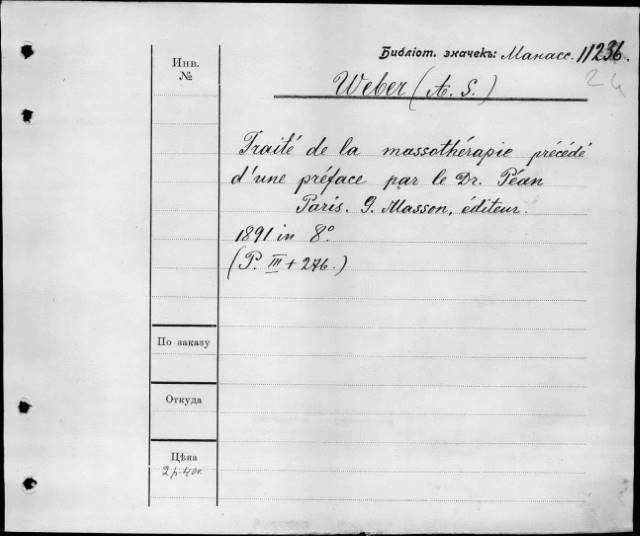 Библіот. значекъ: Манасс. 11236.
24
Инв.
№
Weber (A. S.)
Traité de la massothérapie précédé
d'une préface par le Dr. Péan
Paris. G. Masson, éditeur.
1891 in 8º
(P. III + 276.)
По заказу
Откуда
Цѣна
2 р. 40к.